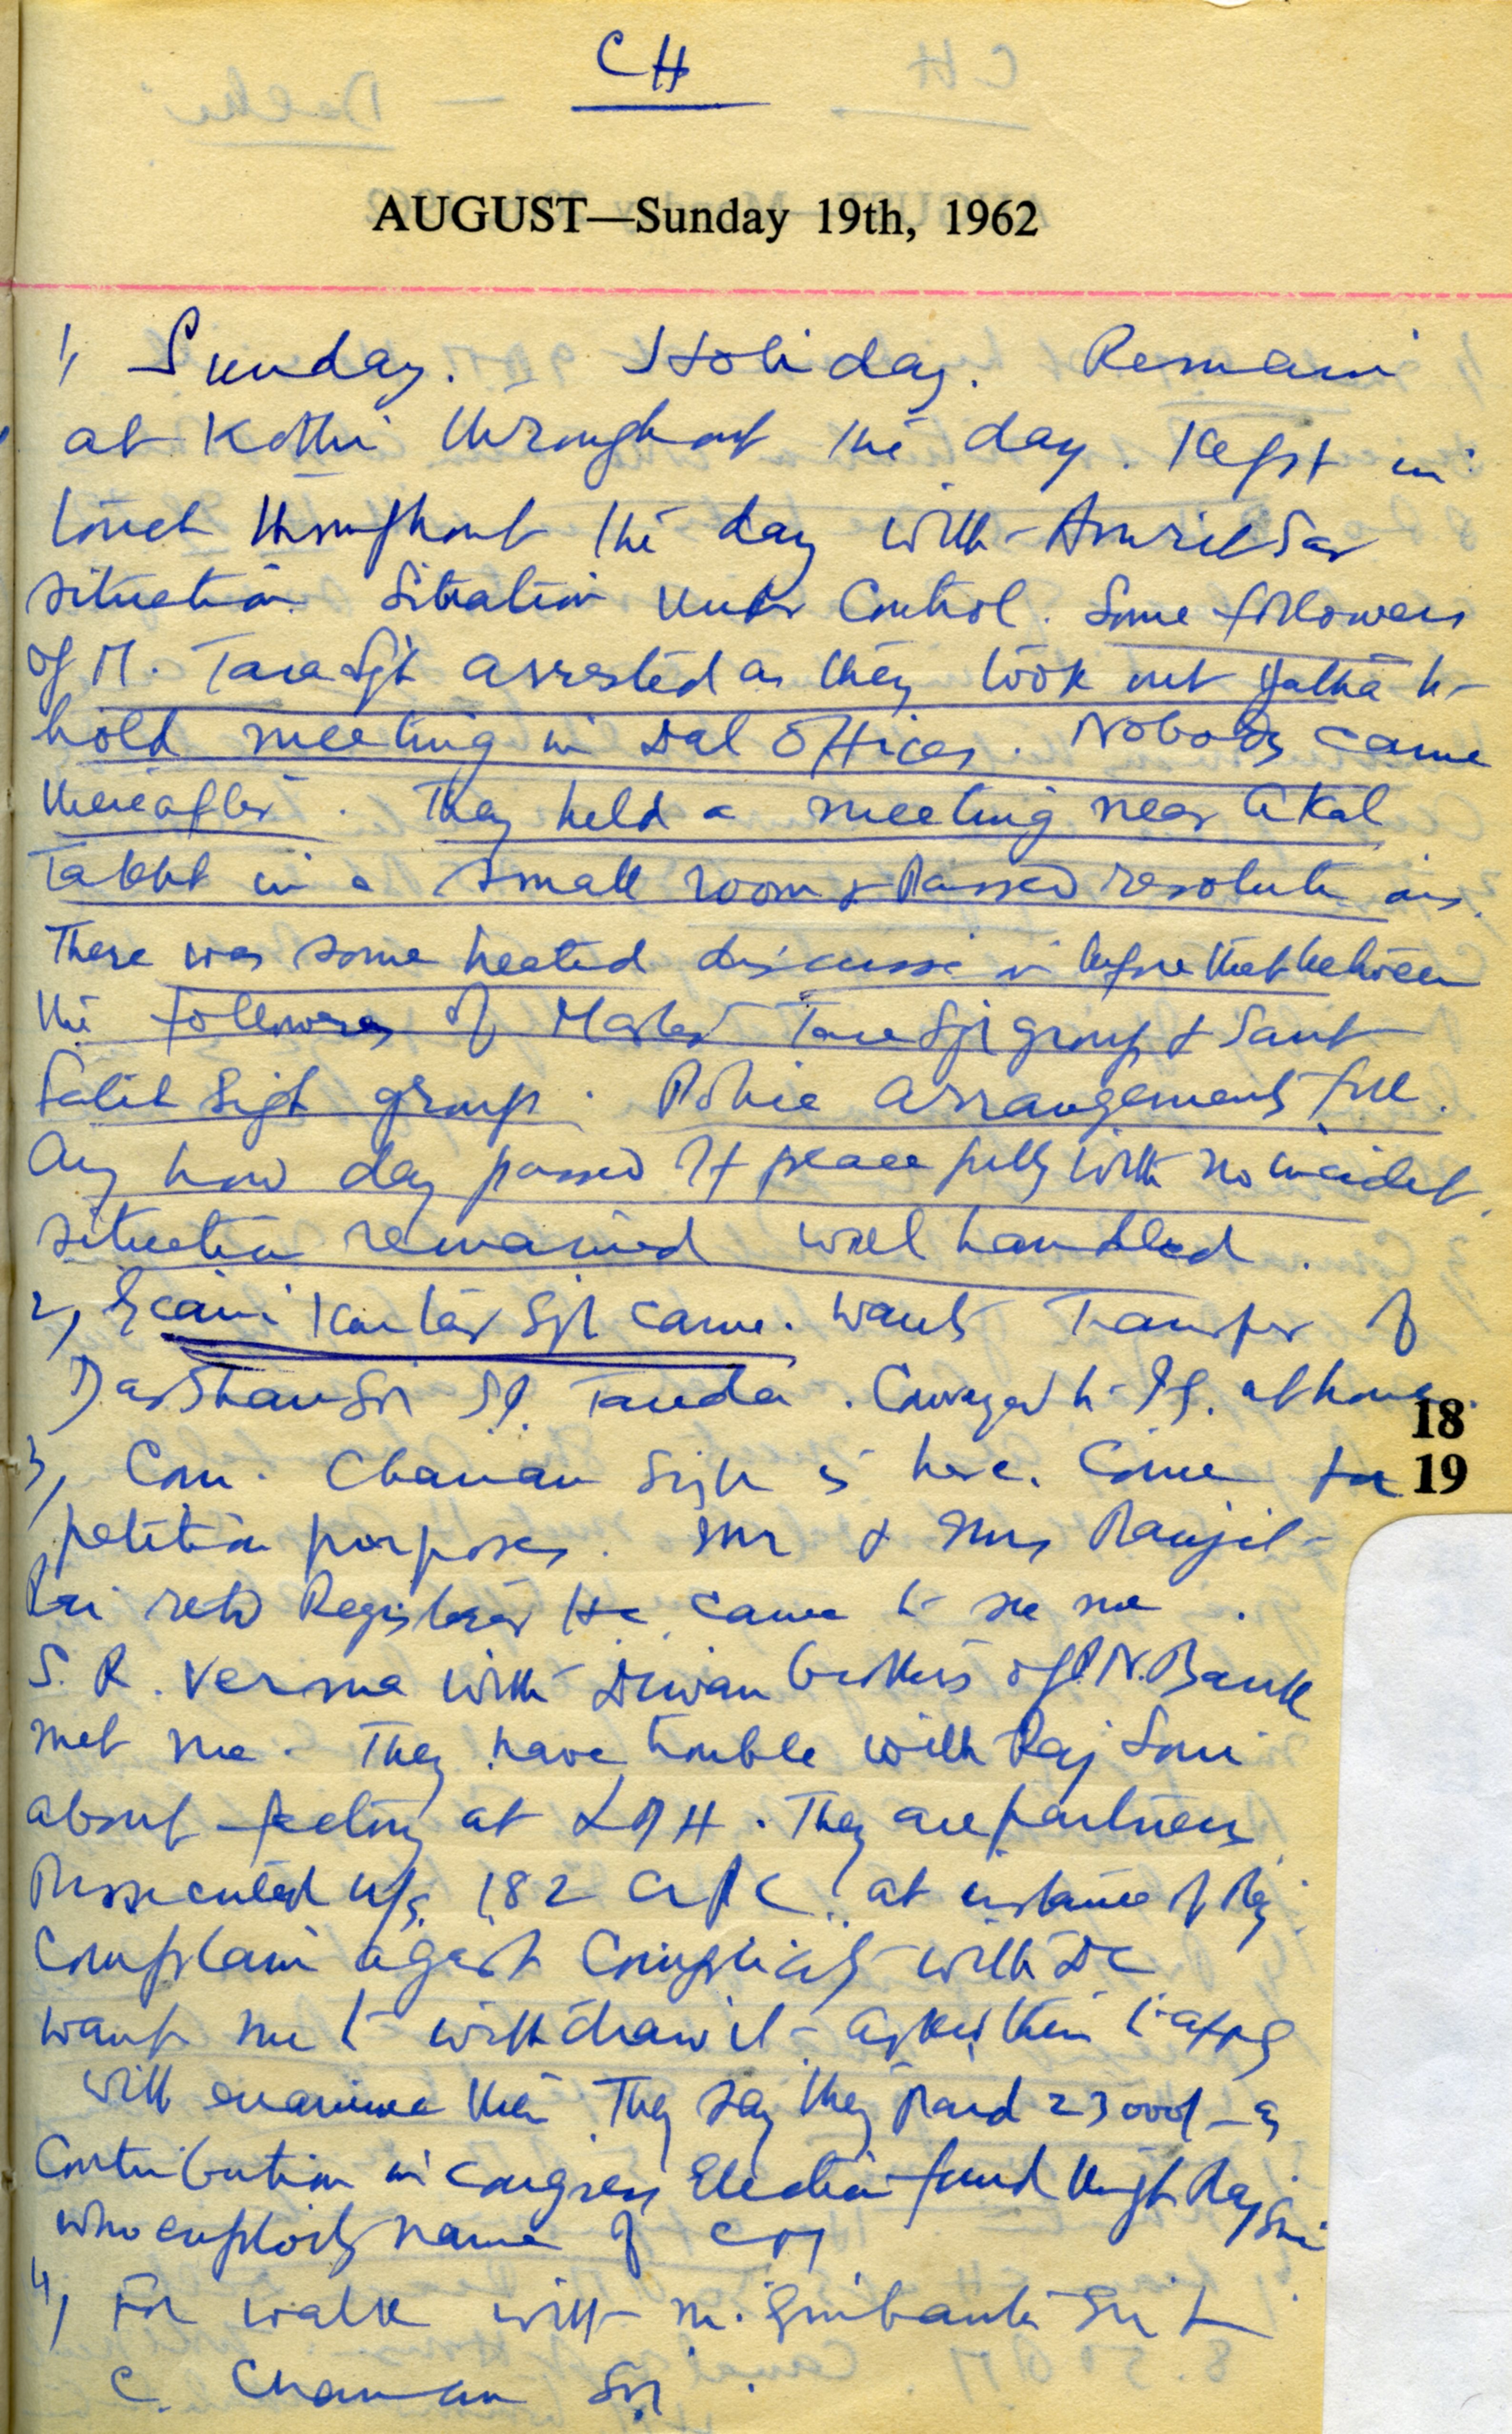 CH
AUGUST—Sunday 19th, 1962
1, Sunday. Holiday. Remain
at Kothi throughout the day. Kept in
touch throughout the day with Amritsar
situation. Situation under Control. Some followers
of M. Tara Sgh arrested as they took out Jatha to
hold meeting in Dal offices. Nobody came
thereafter. They held a meeting near Akal
Takht in a small room & Passed resolutions.
There was some heated discussion before that between
the followers of Master Tara Sgh group & Sant
Fateh Sigh group. Police arrangements full.
Any how day passed of peacefully with no incident.
situation remained well handled.
2, Giani Kartar Sgh came. Wants Transfer of
Darshan Sgh SI. Tanda. Conveyed to IG. at home.
18
3, Com. Chanan Sigh is here. Come for
19
petition purposes. Mr & Mrs Ranjit
Rai retd Registrar Hc came to see me.
S. R. Verma with Diwan brothers of P.N. Bank
met me. They have trouble with Raj Soni
about factory at LDH. They are partners
Prosecuted u/s 182 CrPC at instance of Raj
Complain agast with DC
want me to withdraw it. asked them to
will examine then They say they Paid 23000/- as
Contribution in Congress Election fund thrugh Raj Soni
who exploits name of CM
4, For walk with M. Gurbanta Sgh &
C. Chanan Sgh.